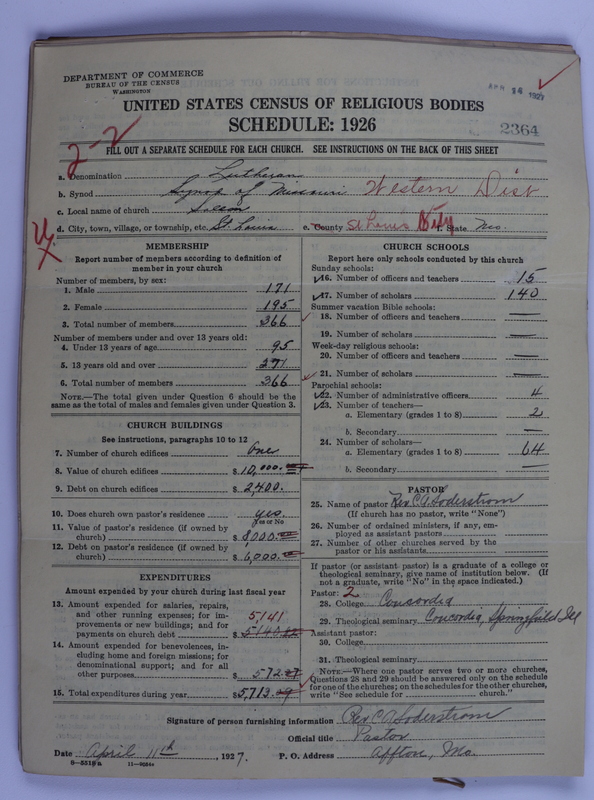 DEPARTMENT OF COMMERCE
BUREAU OF THE CENSUS
WASHINGTON
APR 14 1927
UNITED STATES CENSUS OF RELIGIOUS BODIES
SCHEDULE: 1926
2364
2-2
FILL OUT A SEPARATE SCHEDULE FOR EACH CHURCH. SEE INSTRUCTIONS ON THE BACK OF THIS SHEET
a. Denomination Lutheran
b. Synod Synod of Missouri Western Dist
c. Local name of church Salem
d. City, town, village, or township, etc. St. Louis e. County St Louis f. State Mo.
MEMBERSHIP
Report number of members according to definition of
member in your church
Number of members, by sex:
1. Male 171
2. Female 195
3. Total number of members 366
Number of members under and over 13 years old:
4. Under 13 years of age 95
5. 13 years old and over 271
6. Total number of members 366
NOTE.—The total given under Question 6 should be the
same as the total of males and females given under Question 3.
CHURCH BUILDINGS
See instructions, paragraphs 10 to 12
7. Number of church edifices One
8. Value of church edifices $10,000.
9. Debt on church edifices $2,400.
10. Does church own pastor's residence? yes.
Yes or No
11. Value of pastor's residence (if owned by
church) $8,000.
12. Debt on pastor's residence (if owned by
church) $6,000.
EXPENDITURES
Amount expended by your church during last fiscal year
13. Amount expended for salaries, repairs,
and other running expenses; for im-
provements or new buildings; and for
payments on church debt 5141
$5140.
14. Amount expended for benevolences, in-
cluding home and foreign missions; for
denominational support; and for all
other purposes $572.
15. Total expenditures during year $5,713.
CHURCH SCHOOLS
Report here only schools conducted by this church
Sunday schools:
16. Number of officers and teachers 15
17. Number of scholars 140
Summer vacation Bible schools:
18. Number of officers and teachers —
19. Number of scholars —
Week-day religious schools:
20. Number of officers and teachers —
21. Number of scholars —
Parochial schools:
22. Number of administrative officers 4
23. Number of teachers—
a. Elementary (grades 1 to 8) 2
b. Secondary —
24. Number of scholars—
a. Elementary (grades 1 to 8) 64
b. Secondary —
PASTOR
25. Name of pastor Rev. C A Soderstrom
(If church has no pastor, write "None")
26. Number of ordained ministers, if any, em-
ployed as assistant pastors
27. Number of other churches served by the
pastor or his assistants
If pastor (or assistant pastor) is a graduate of a college or
theological seminary, give name of institution below. (If
not a graduate, write "No" in the space indicated.)
Pastor: 2
28. College Concordia
29. Theological seminary Concordia, Springfield Ill
Assistant pastor:
30. College
31. Theological seminary
NOTE.—Where one pastor serves two or more churches,
Questions 28 and 29 should be answered only on the schedule
for one of the churches; on the schedules for the other churches,
write "See schedule for church."
Signature of person furnishing information Rev. C A Soderstrom
Official title Pastor
Date April 11th, 1927. P. O. Address Affton, Mo.